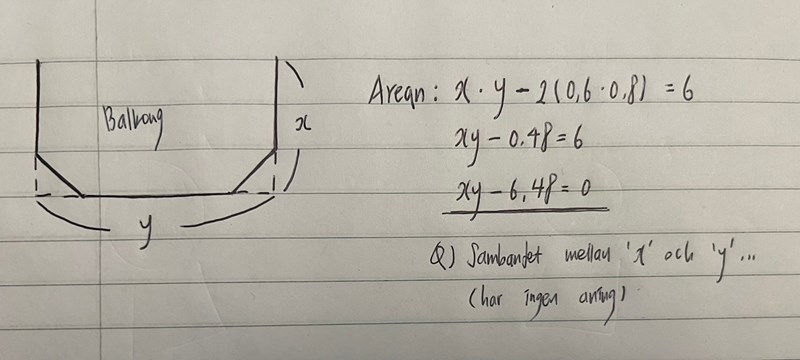 Balkong
x
y
Arean: x · y - 2(0,6 · 0,8) = 6
xy - 0.48 = 6
xy - 6,48 = 0
Q) Sambandet mellan 'x' och 'y'...
(har ingen aning)